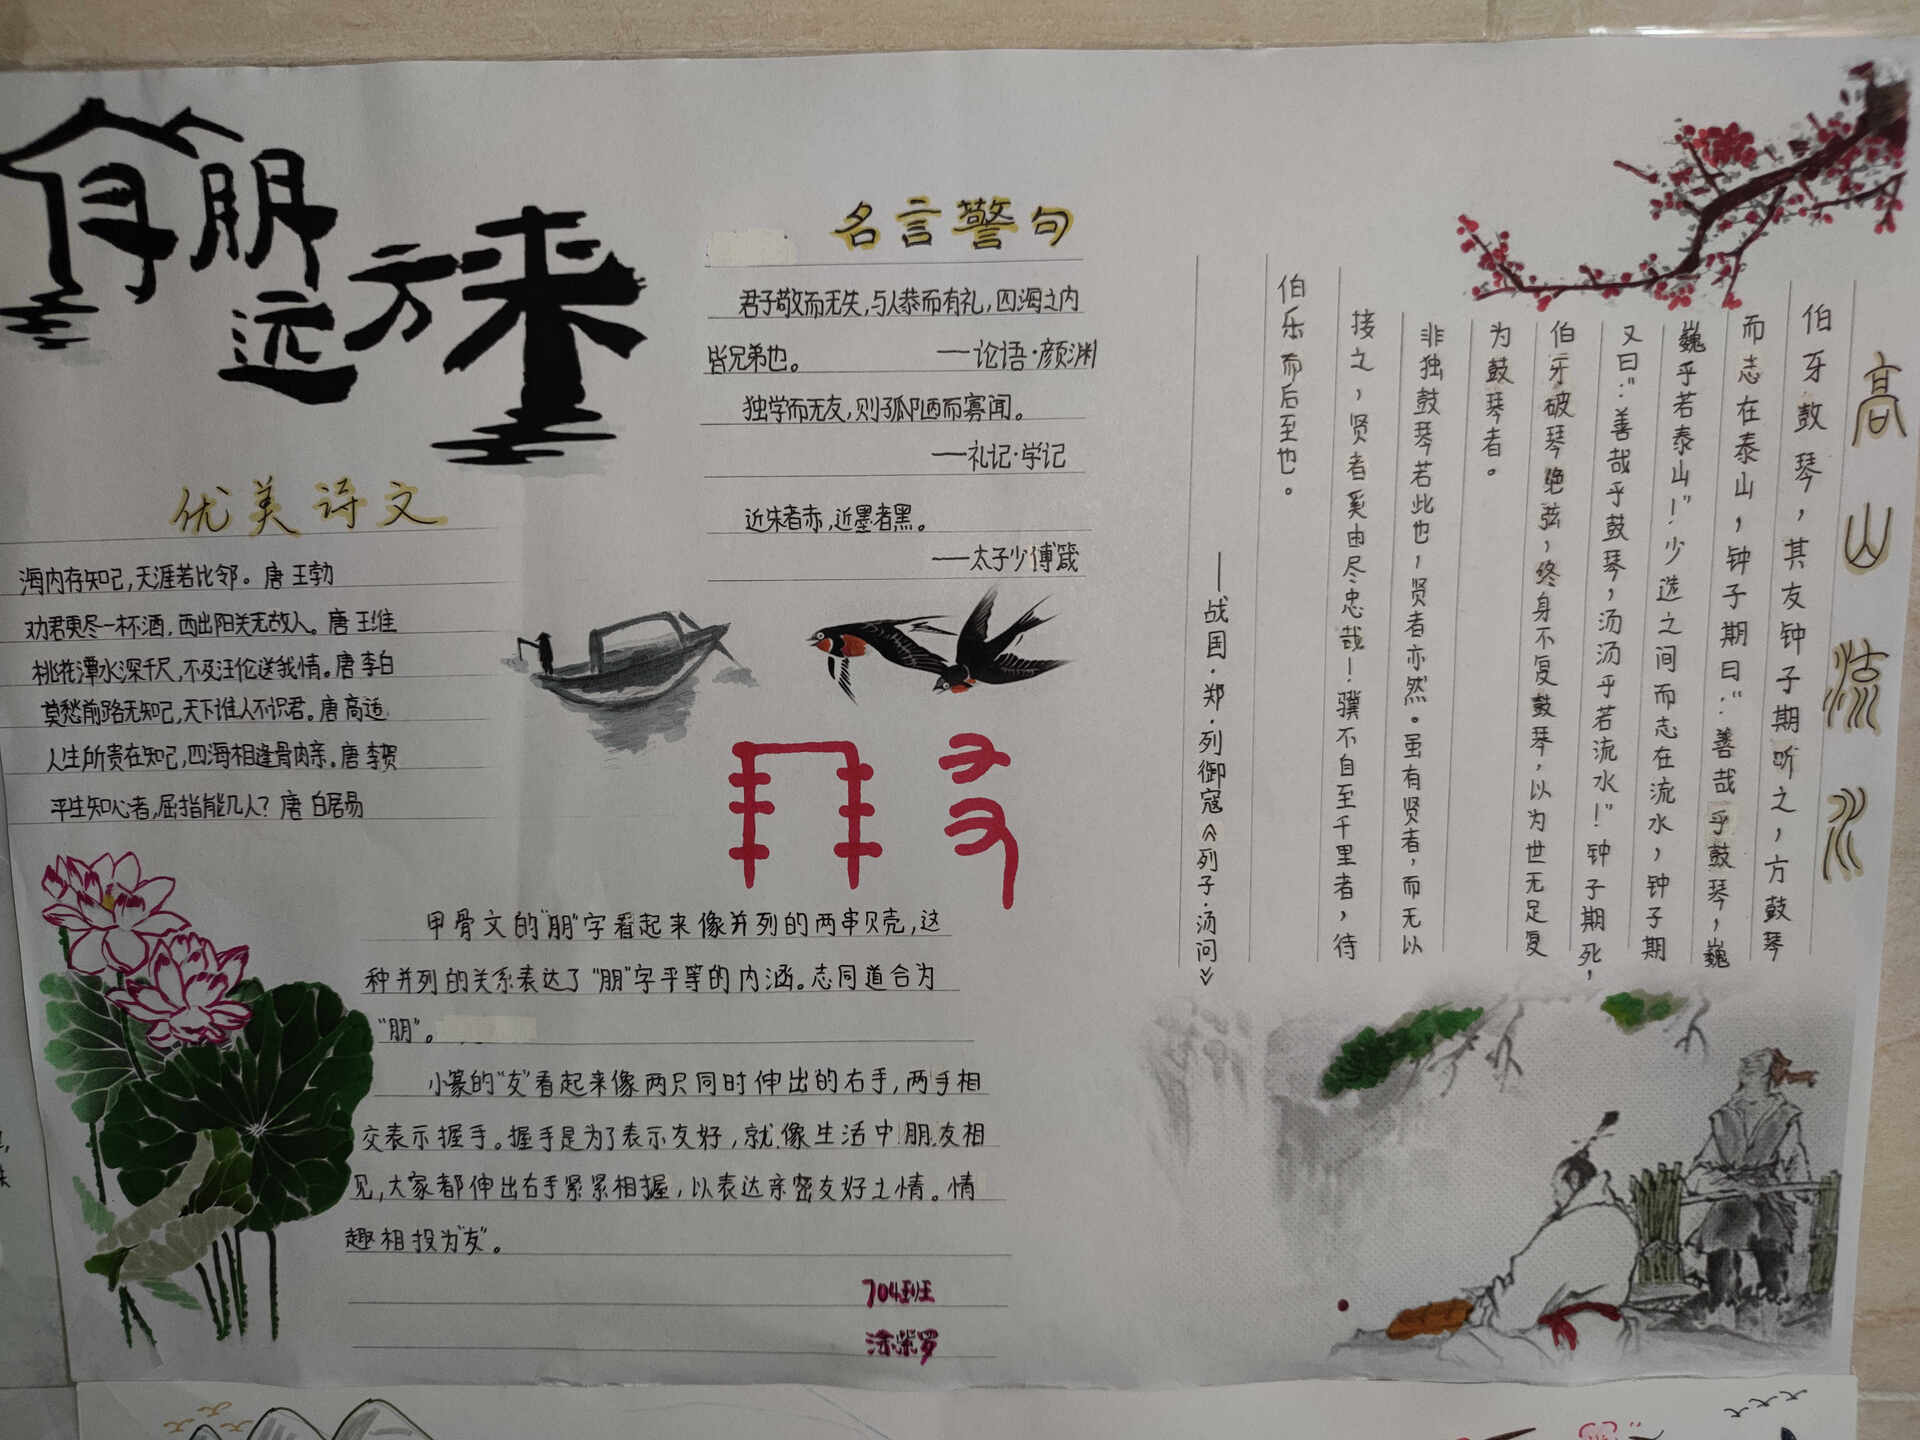 有朋
远方来
优美诗文
海内存知己,天涯若比邻。唐 王勃
劝君更尽一杯酒,西出阳关无故人。唐 王维
桃花潭水深千尺,不及汪伦送我情。唐 李白
莫愁前路无知己,天下谁人不识君。唐 高适
人生所贵在知己,四海相逢骨肉亲。唐 李贺
平生知心者,屈指能几人?唐 白居易
名言警句
君子敬而无失,与人恭而有礼,四海之内
皆兄弟也。 ——论语·颜渊
独学而无友,则孤陋而寡闻。
——礼记·学记
近朱者赤,近墨者黑。
——太子少傅箴
甲骨文的“朋”字看起来像并列的两串贝壳,这
种并列的关系表达了“朋”字平等的内涵。志同道合为
“朋”。
小篆的“友”看起来像两只同时伸出的右手,两手相
交表示握手。握手是为了表示友好,就像生活中朋友相
见,大家都伸出右手紧紧相握,以表达亲密友好之情。情
趣相投为“友”。
704班
涂紫罗
高山流水
伯牙鼓琴,其友钟子期听之,方鼓琴
而志在泰山,钟子期曰:“善哉乎鼓琴,巍
巍乎若泰山!”少选之间而志在流水,钟子期
又曰:“善哉乎鼓琴,汤汤乎若流水!”钟子期死,
伯牙破琴绝弦,终身不复鼓琴,以为世无足复
为鼓琴者。
非独鼓琴若此也,贤者亦然。虽有贤者,而无以
接之,贤者奚由尽忠哉!骥不自至千里者,待
伯乐而后至也。
——战国·郑·列御寇《列子·汤问》